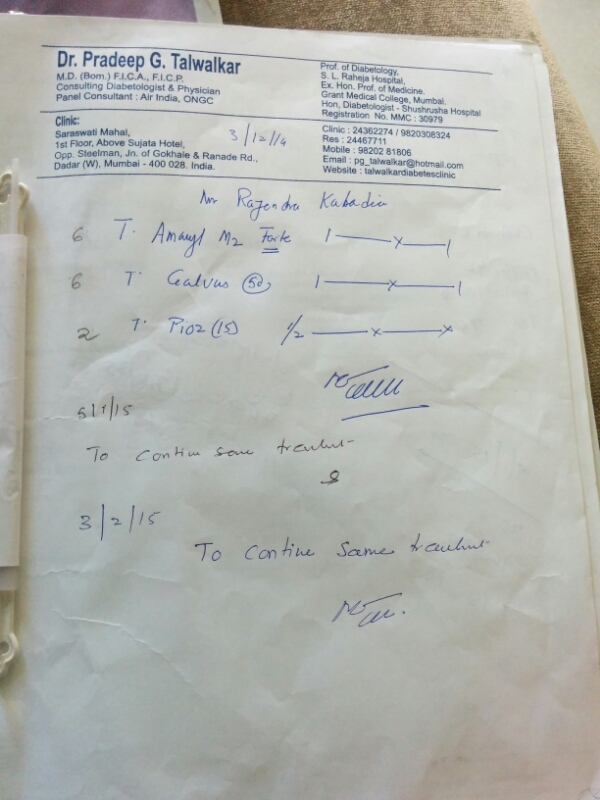 Dr. Pradeep G. Talwalkar
M.D. (Bom.) F.I.C.A., F.I.C.P.
Consulting Diabetologist & Physician
Panel Consultant : Air India, ONGC
Prof. of Diabetology,
S. L. Raheja Hospital,
Ex. Hon. Prof. of Medicine.
Grant Medical College, Mumbai.
Hon, Diabetologist - Shushrusha Hospital
Registration No. MMC : 30979
Clinic:
Saraswati Mahal,
1st Floor, Above Sujata Hotel,
Opp. Steelman, Jn. of Gokhale & Ranade Rd.,
Dadar (W), Mumbai - 400 028. India.
3/12/14
Clinic : 24362274 / 9820308324
Res : 24467711
Mobile : 98202 81806
Email : pg_talwalkar@hotmail.com
Website : talwalkardiabetesclinic
Mr Rajendra Kabadia
6 T. Amaryl M2 Forte 1 — x — 1
6 T. Galvus (50) 1 — x — 1
2 T. PIOZ (15) 1/2 — x — x
5/1/15
To continue same treatment
3/2/15
To continue same treatment